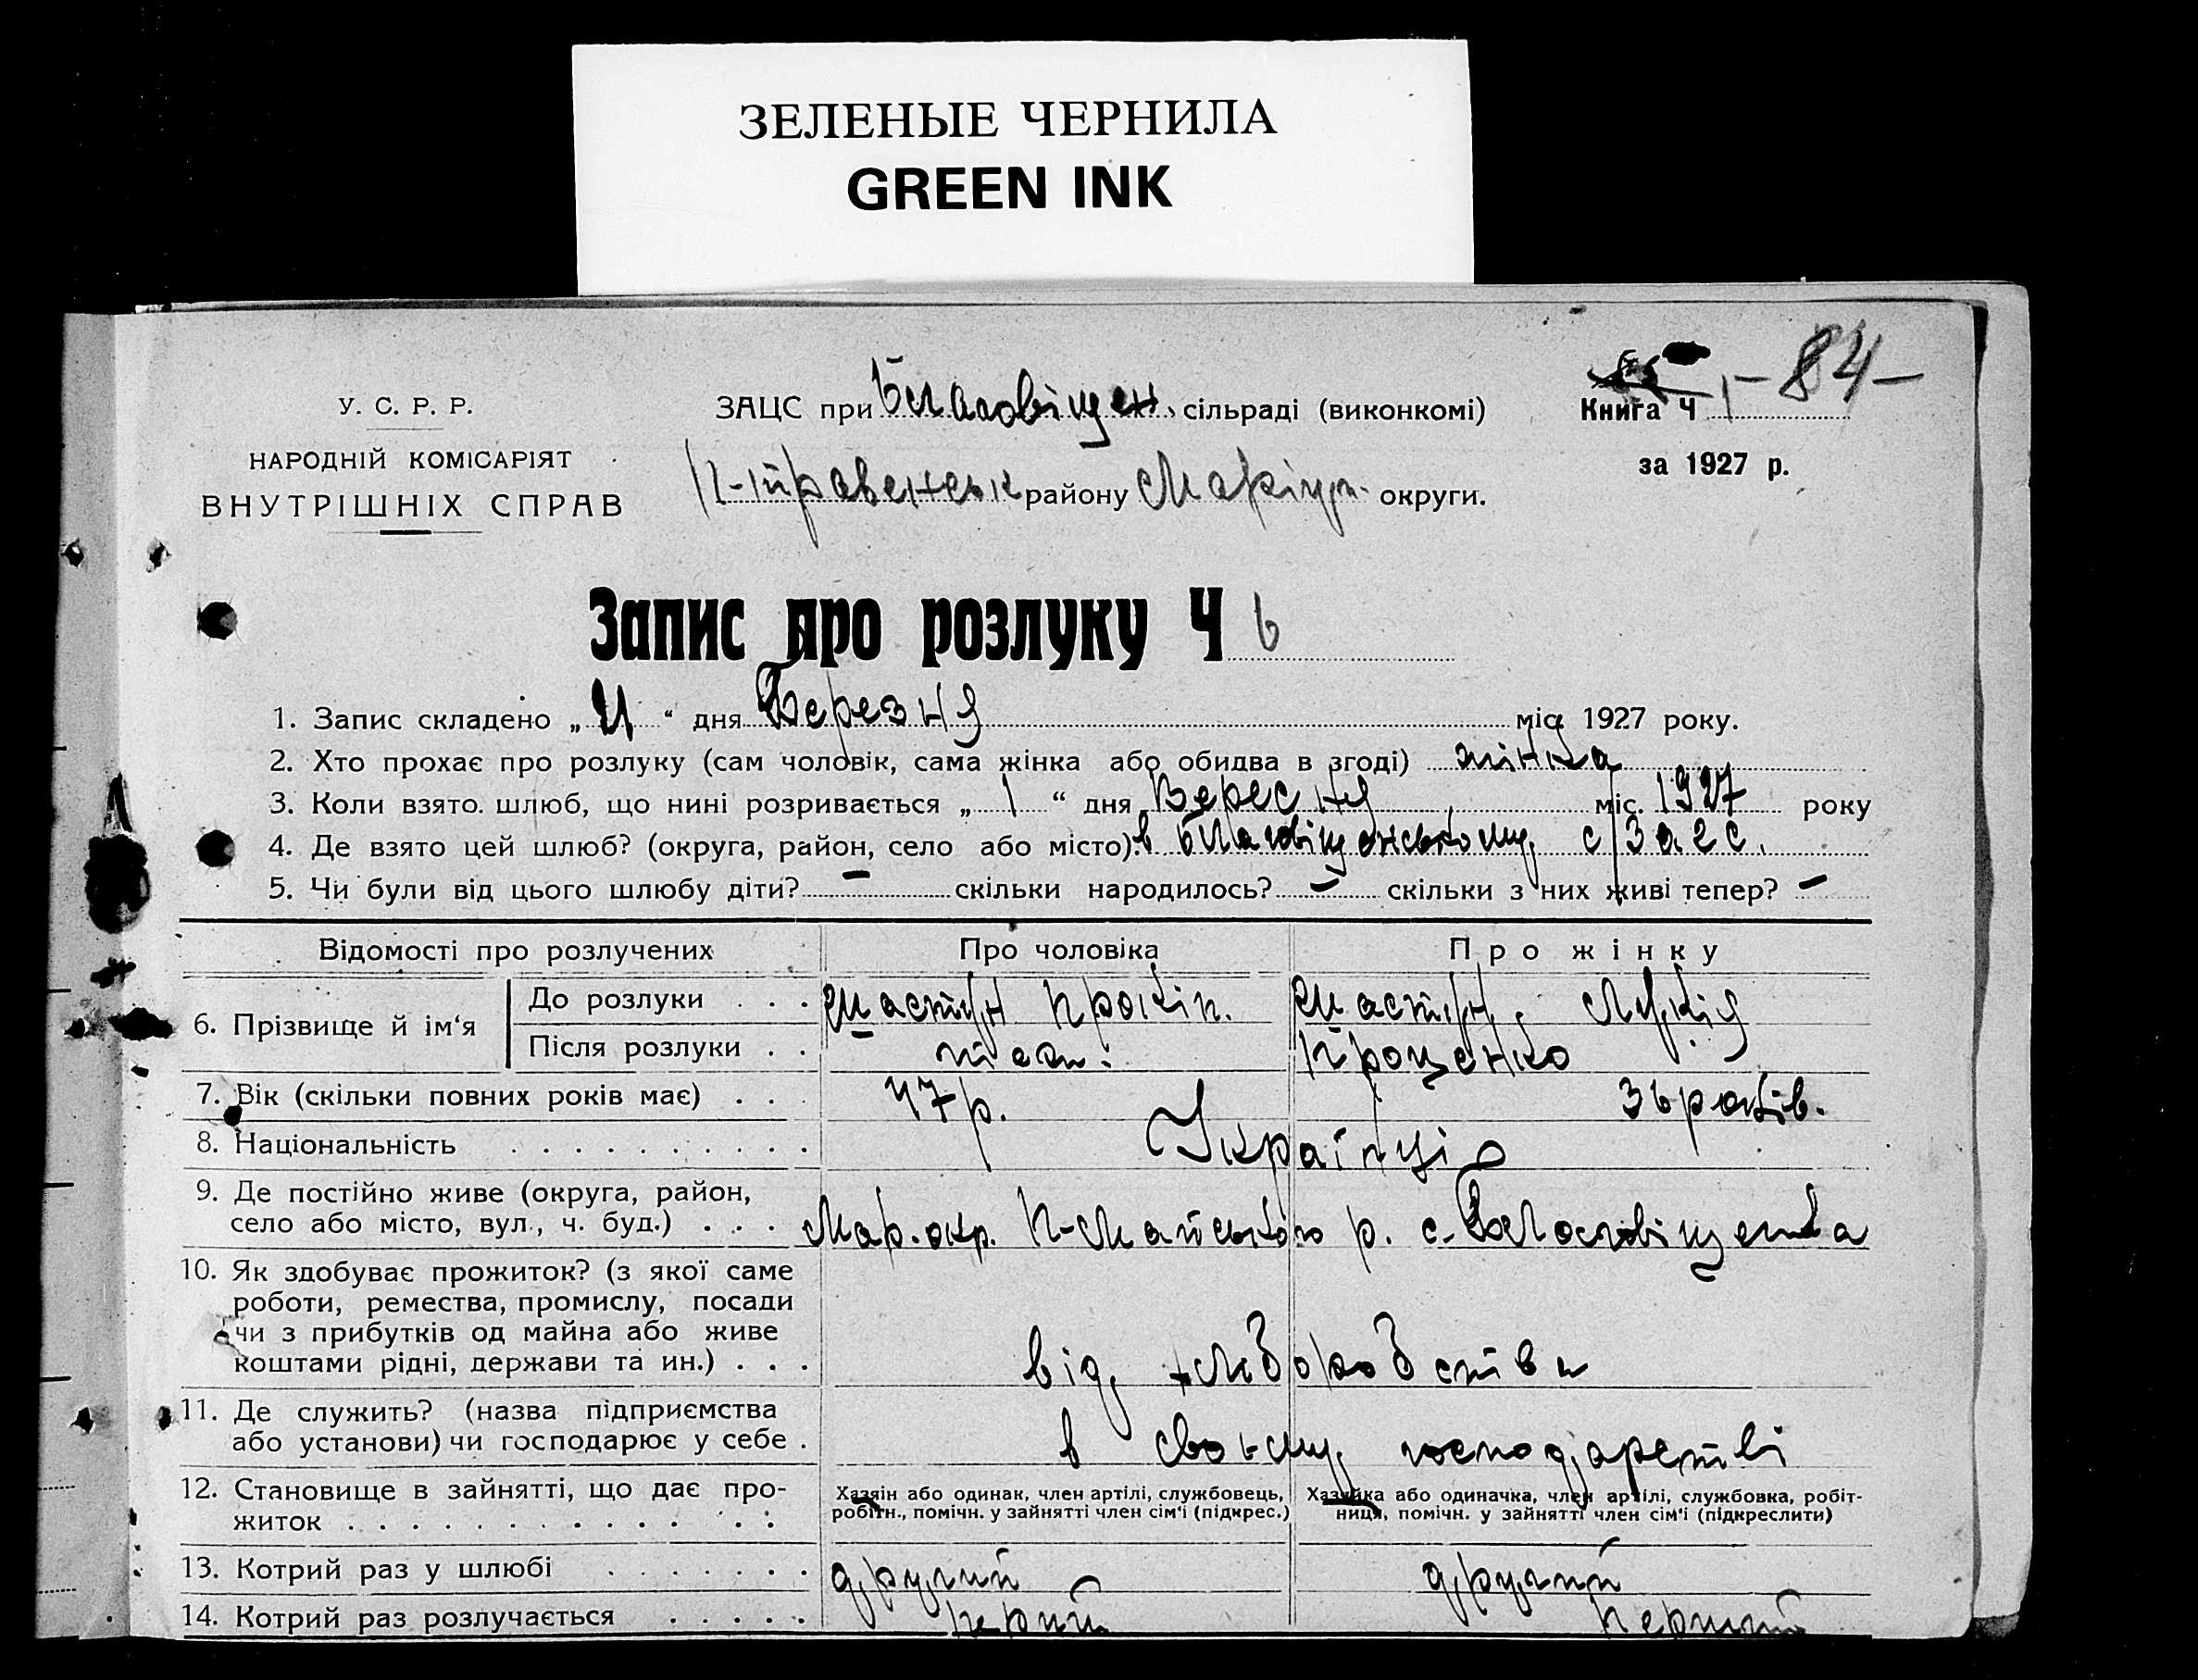 ЗЕЛЕНЫЕ ЧЕРНИЛА
GREEN INK
- 84 -
У. С. Р. Р.
НАРОДНІЙ КОМІСАРІЯТ
ВНУТРІШНІХ СПРАВ
ЗАЦС при Благовіщен. сільраді (виконкомі)
району Маріуп. округи.
Книга Ч 1
за 1927 р.
Запис про розлуку Ч 6
1. Запис складено „ “ дня Березня міс. 1927 року.
2. Хто прохає про розлуку (сам чоловік, сама жінка або обидва в згоді) жінка
3. Коли взято шлюб, що нині розривається „ 1 “ дня Вересня міс. 1927 року
4. Де взято цей шлюб? (округа, район, село або місто) в Благовіщенському с/Загс.
5. Чи були від цього шлюбу діти? — скільки народилось? — скільки з них живі тепер? —
Відомості про розлучених Про чоловіка Про жінку
6. Прізвище й ім‘я
До розлуки . . . Шастун Прокіп. Шастун. Лукія
Після розлуки . . Проценко
7. Вік (скільки повних років має) . . . 47 р. 36 років.
8. Національність . . . . . . . . . . Українці
9. Де постійно живе (округа, район,
село або місто, вул., ч. буд.) . . . Мар. окр. П-Майського р. с. Благовіщенка
10. Як здобуває прожиток? (з якої саме
роботи, ремества, промислу, посади
чи з прибутків од майна або живе
коштами рідні, держави та ин.) . . . від хліборобства
11. Де служить? (назва підприємства
або установи) чи господарює у себе . в своєму господарстві
12. Становище в зайнятті, що дає про-
житок . . . . . . . . . . . . .
Хазяін або одинак, член артілі, службовець,
робітн., помічн. у зайнятті член сім‘і (підкрес.)
Хазяйка або одиначка, член артілі, службовка, робіт-
ниця, помічн. у зайнятті член сім‘і (підкреслити)
13. Котрий раз у шлюбі . . . . . . . другий другий
14. Котрий раз розлучається . . . . . перший перший